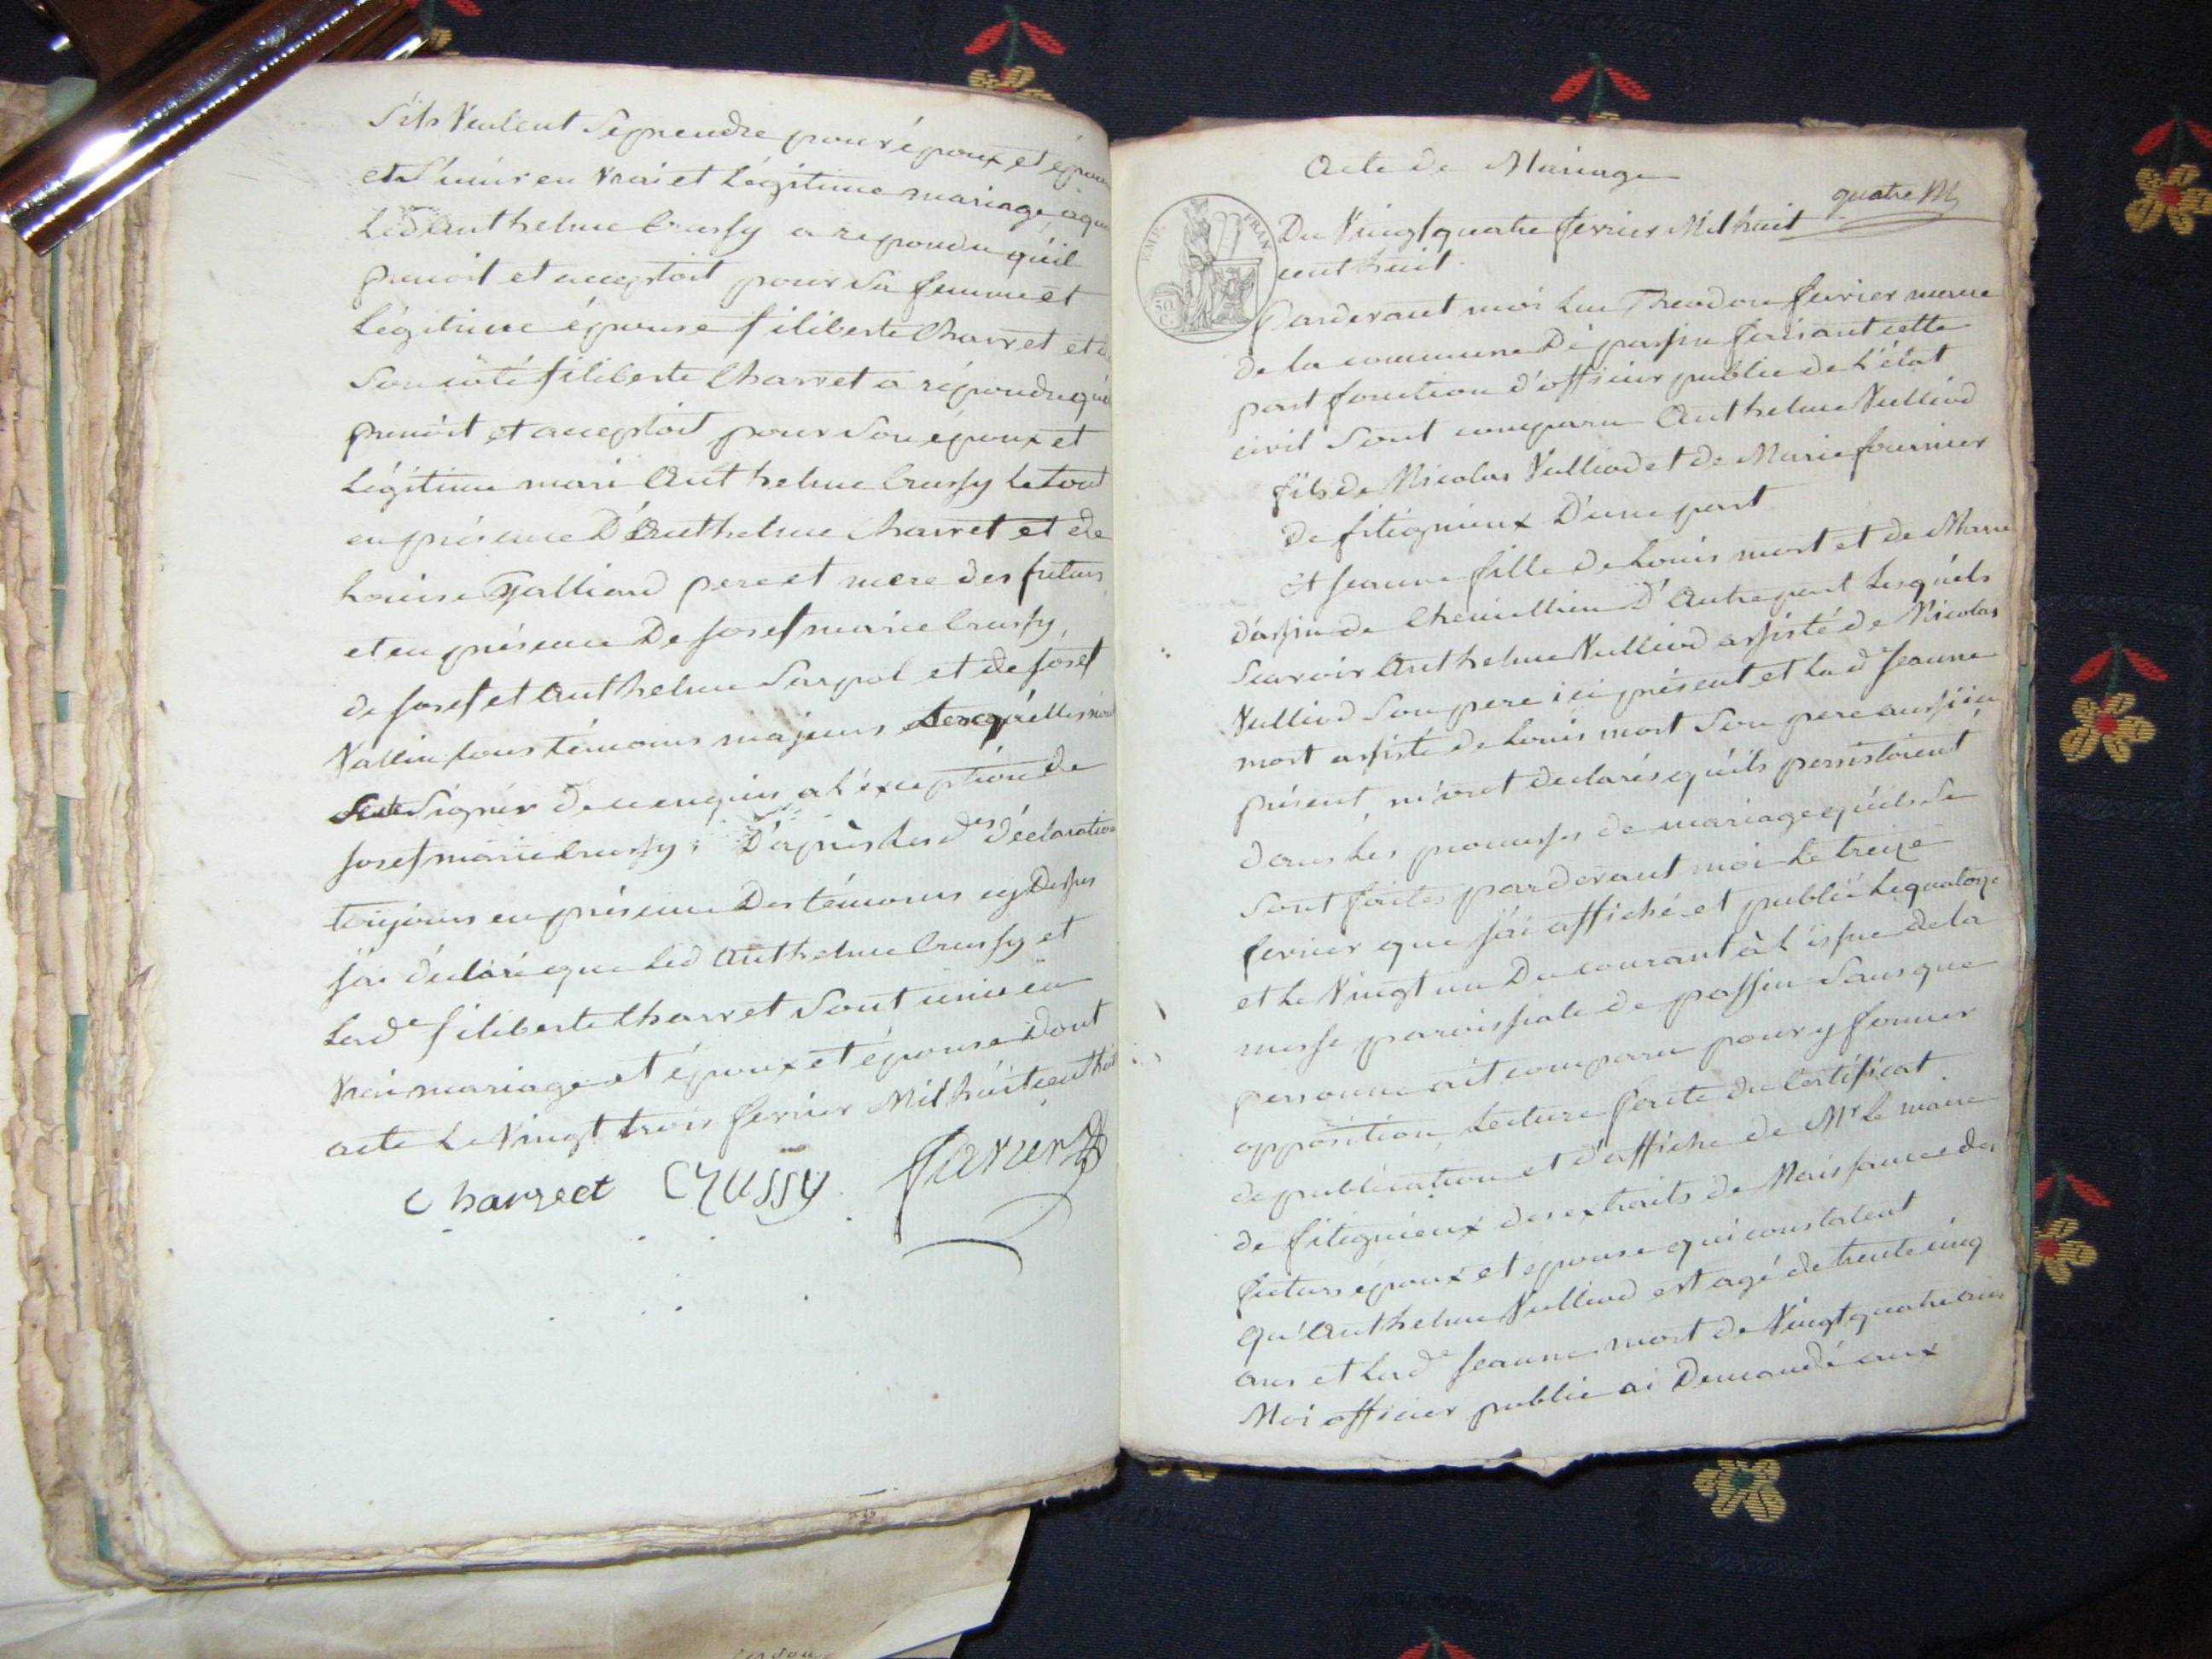 S'ils Veulent Se prendre pour époux et épouse
et S'unir en Vrai et Légitime mariage, a quoi
Led Anthelme Crussy a repondu qu'il
prenoit et acceptoit pour Sa femme et
Légitime épouse filiberte Charret et de
Son coté filiberte Charret a répondu qu'
prenoit et acceptoit pour Son époux et
Légitime mari Anthelme Crussy Le tout
en présence D'Anthelme Charret et de
Louise Galliard pere et mere des futurs
et en présence De Josef marie Crussy,
de Josef et Anthelme Sarpol et de Josef
Vallin tous témoins majeurs
Signer de ce enquis a l'éxception de
Josef marie Crussy; D'après Les des déclaration
toujours en présence Des témoins cy Dessus
J'ai déclaré que Led Anthelme Crussy et
Lade filiberte Charret Sont unis en
Vrai mariage et époux et épouse Dont
acte Le Vingt trois fevrier Mil huit cent huit
Charreet Crussy
Acte de Mariage
quatre
Du Vingt quatre fevrier Mil huit
cent huit.
EMP. FRAN.
50 C
Pardevant moi Luc Theodore fevrier maire
de la commune De passin faisant cette
part fonction d'officier public de L'état
civil Sont comparu Anthelme Vulliod
fils de Nicolas Vulliod et de Marie fournier
de fitignieux D'une part
et Jeanne fille de Louis mort et de Marie
D'assin de Chemillieu D'Autre part Lesquéls
Scavoir Anthelme Vulliod assisté de Nicolas
Vulliod Son pere ici présent et Lad Jeanne
mort assisté de Louis mort Son pere aussi ici
présent, m'ont declarés qu'ils persistoient
dans Les promesses de mariage qu'ils Se
Sont faites pardevant moi Le treize
fevrier que J'ai affiché et publié Le quatorze
et Le Vingt un Du courant à L'issue de la
messe paroissiale de passin Sans que
personne ait comparu pour y former
opposition, Lecture faite du Certificat
de publication et d'affiche de Mr Le maire
de fitignieux des extraits de Naissances des
futurs époux et epouse qui constatent
Qu'Anthelme Vulliod est agé de trente cinq
ans et Lade Jeanne mort de Vingt quatre ans
Moi officier public ai Demandé aux